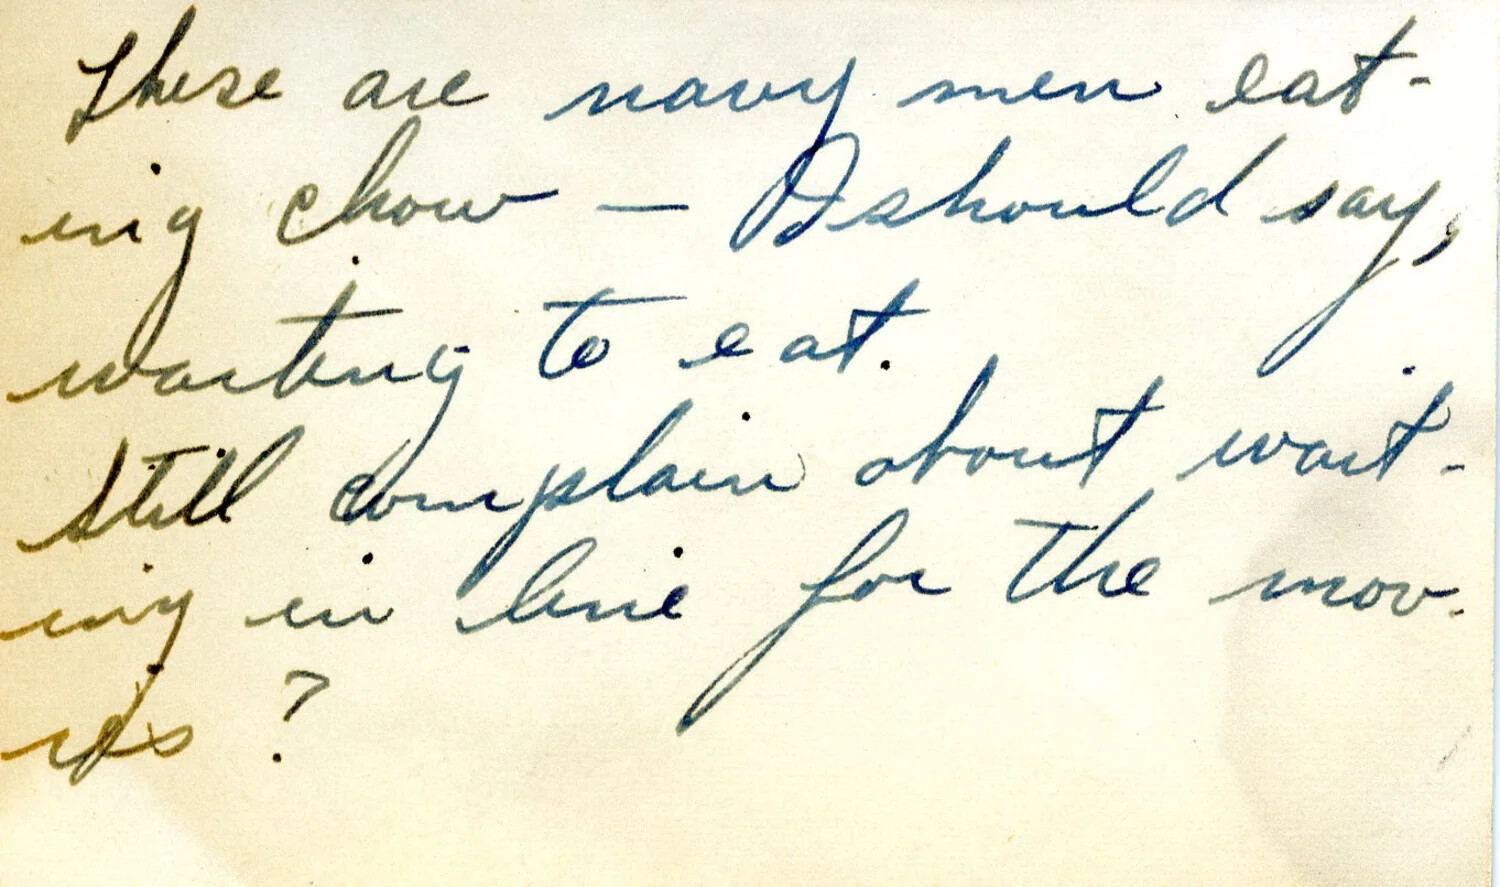 These are navy men eat-
ing chow — I should say,
waiting to eat.
Still complain about wait-
ing in line for the mov-
ies?